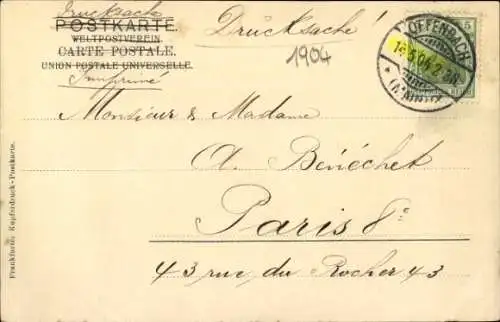 Drucksache
Drucksache!
POSTKARTE.
WELTPOSTVEREIN.
CARTE POSTALE.
UNION POSTALE UNIVERSELLE.
Imprimé
1904
OFFENBACH
5
(A. MAIN)
Monsieur & Madame
A. Bénéchet
Paris 8e
43 rue du Rocher 43
Frankfurter Kupferdruck-Postkarte.